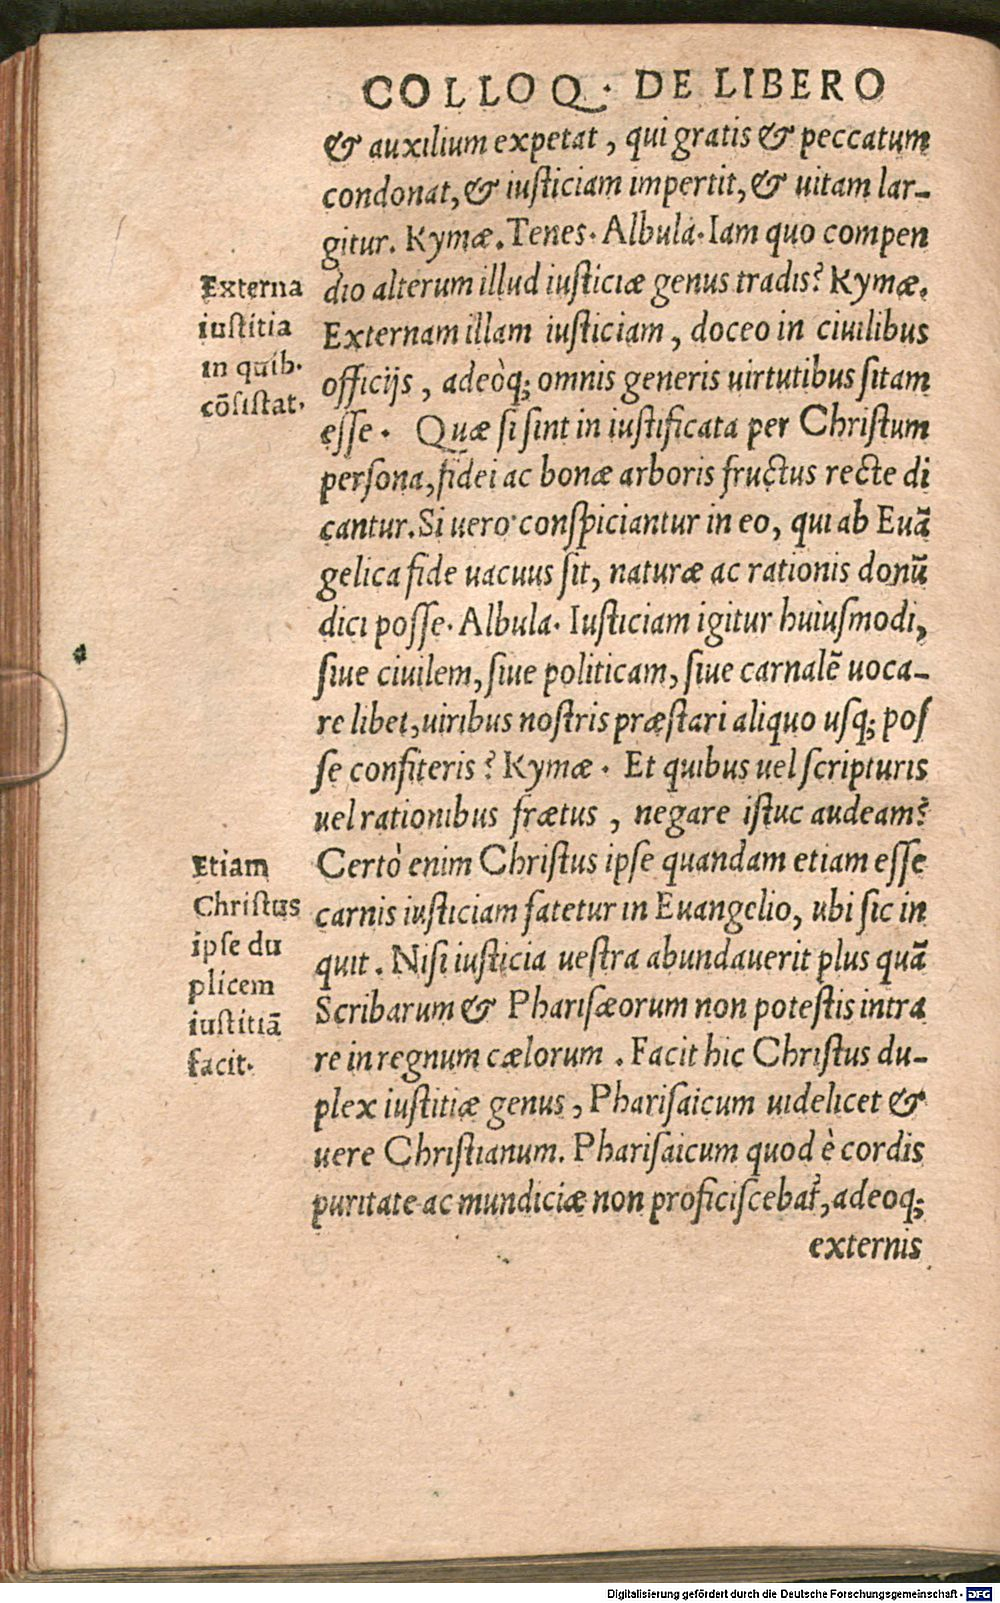 COLLOQ. DE LIBERO
& auxilium expetat, qui gratis & peccatum
condonat, & iusticiam impertit, & uitam lar-
gitur. Kymæ. Tenes. Albula. Iam quo compen
dio alterum illud iusticiæ genus tradis? Kymæ.
Externam illam iusticiam, doceo in ciuilibus
officijs, adeòq; omnis generis uirtutibus sitam
esse. Quæ si sint in iustificata per Christum
persona, fidei ac bonæ arboris fructus recte di
cantur. Si uero conspiciantur in eo, qui ab Euã
gelica fide uacuus sit, naturæ ac rationis donũ
dici posse. Albula. Iusticiam igitur huiusmodi,
siue ciuilem, siue politicam, siue carnalẽ uoca-
re libet, uiribus nostris præstari aliquo usq; pos
se confiteris? Kymæ. Et quibus uel scripturis
uel rationibus frætus, negare istuc audeam?
Certò enim Christus ipse quandam etiam esse
carnis iusticiam fatetur in Euangelio, ubi sic in
quit. Nisi iusticia uestra abundauerit plus quã
Scribarum & Pharisæorum non potestis intra
re in regnum cælorum. Facit hic Christus du-
plex iustitiæ genus, Pharisaicum uidelicet &
uere Christianum. Pharisaicum quod è cordis
puritate ac mundiciæ non proficiscebat̃, adeoq;
externis
Externa
iustitia
in quib.
cõsistat.
Etiam
Christus
ipse du
plicem
iustitiã
facit.
Digitalisierung gefördert durch die Deutsche Forschungsgemeinschaft - DFG